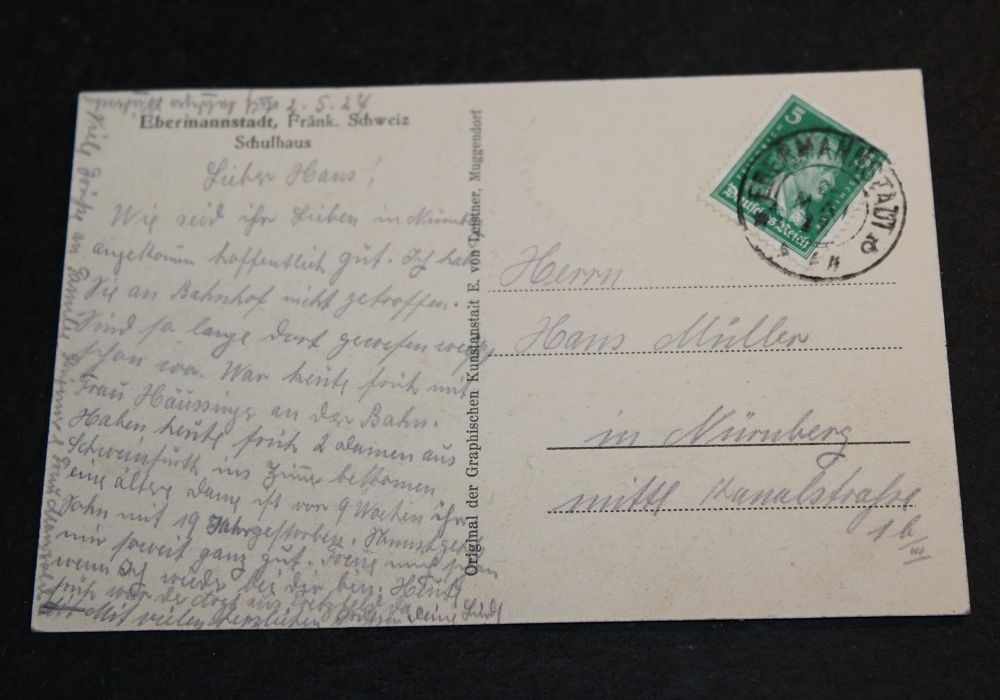 2.5.27
Ebermannstadt, Fränk. Schweiz
Schulhaus
Lieber Hans!
Wie seid ihr Lieben in Nürnbg
angekomm hoffentlich gut. Ich hab
Sie an Bahnhof nicht getroffen.
Sind so lange dort gewesen
schon war. War heute früh mit
Frau Häussinge an der Bahn.
Haben heute früh 2 Damen aus
Schweinfurth ins Zimm bekommen
eine ältere Dame ist vor 9 Wochen ihr
Sohn mit 19 Jahr gestorben.
mir soweit ganz gut. Freue mich schon
wenn ich wieder bei dir bin. Heute
früh war der
Mit vielen herzlichen Grüssen deine
Viele Grüße an Familie
Original der Graphischen Kunstanstalt E. von Leistner, Muggendorf
5
Deutsches Reich
EBERMANNSTADT
Herrn
Hans Müller
in Nürnberg
mittl Kanalstraße
16/III